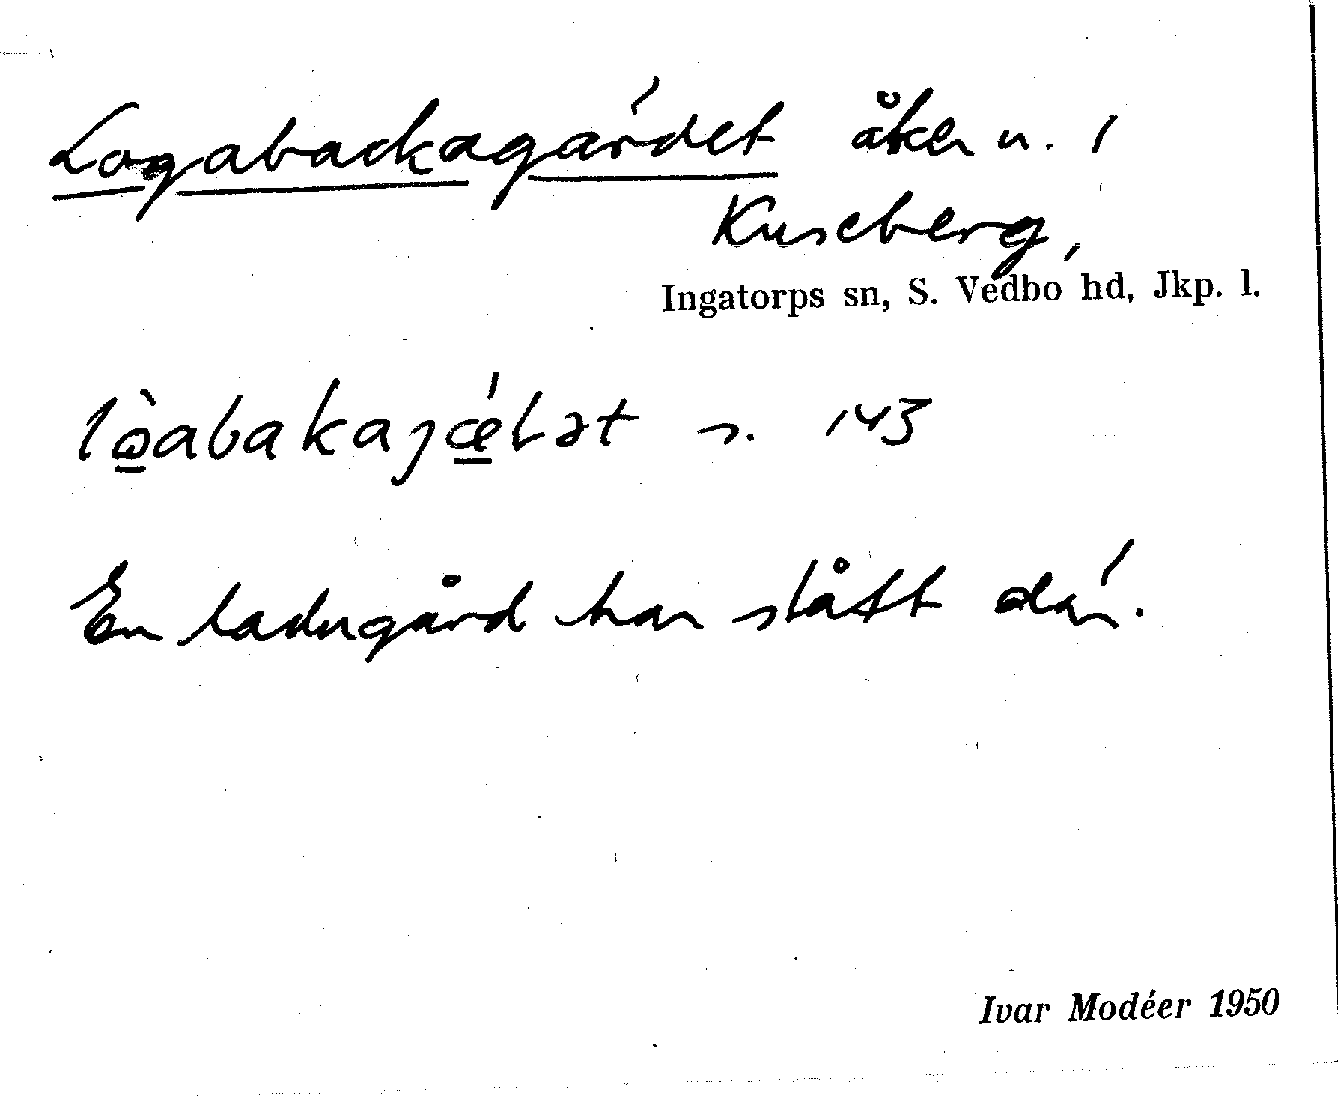 Logabackagärdet åker n. 1
Kuseberg,
Ingatorps sn, S. Vedbo hd, Jkp. l.
s. 143
En ladugård har stått där.
Ivar Modéer 1950